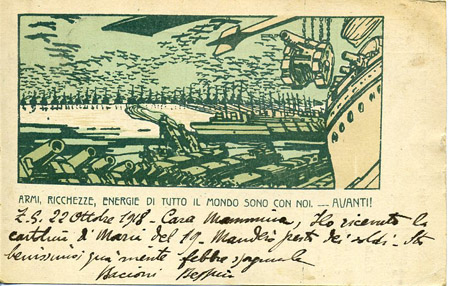 ARMI, RICCHEZZE, ENERGIE DI TUTTO IL MONDO SONO CON NOI. — AVANTI!
Z.G. 22 Ottobre 1918 - Cara Mammina, Ho ricevuto la
cartolina di Maria del 19 - Manderò presto dei soldi. Sto
benissimo qui niente febbre spagnuola
Bacioni Beppin